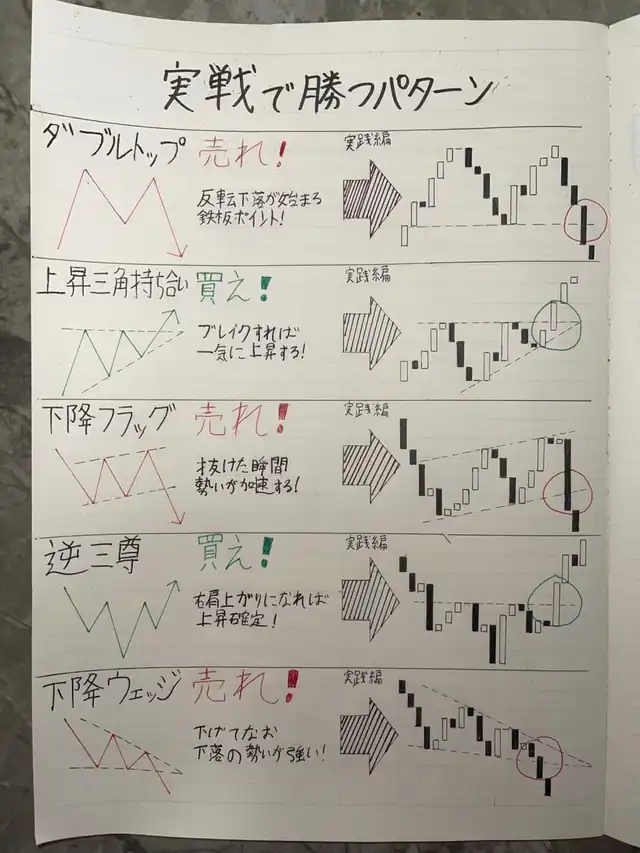 実戦で勝つパターン
ダブルトップ 売れ!
反転下落が始まる
鉄板ポイント!
実践編
上昇三角持ち合い 買え!
ブレイクすれば
一気に上昇する!
実践編
下降フラッグ 売れ!
抜けた瞬間
勢いが加速する!
実践編
逆三尊 買え!
右肩上がりになれば
上昇確定!
実践編
下降ウェッジ 売れ!
下げてなお
下落の勢いが強い!
実践編